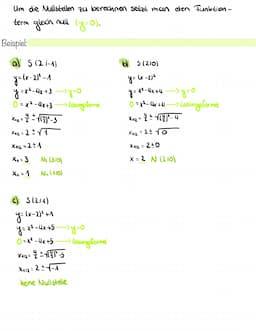 Um die Nullstellen zu berechnen setzt man den Funktion-
term gleich null (y=0).
Beispiel:
a) S(2|-1)
y=(x-2)²-1
y=x²-4x+3 → y=0
0=x²-4x+3 → Lösungsformel
x₁,₂=4/2±√((4/2)²-3)
x₁,₂=2±√1
x₁,₂=2±1
x₁=3 N₁(3|0)
x₂=1 N₂(1|0)
b) S(2|0)
y=(x-2)²
y=x²-4x+4 → y=0
0=x²-4x+4 → Lösungsformel
x₁,₂=4/2±√((4/2)²-4)
x₁,₂=2±√0
x₁,₂=2±0
x=2 N(2|0)
c) S(2|1)
y=(x-2)²+1
y=x²-4x+5 → y=0
0=x²-4x+5 → Lösungsformel
x₁,₂=4/2±√((4/2)²-5)
x₁,₂=2±√-1
keine Nullstelle